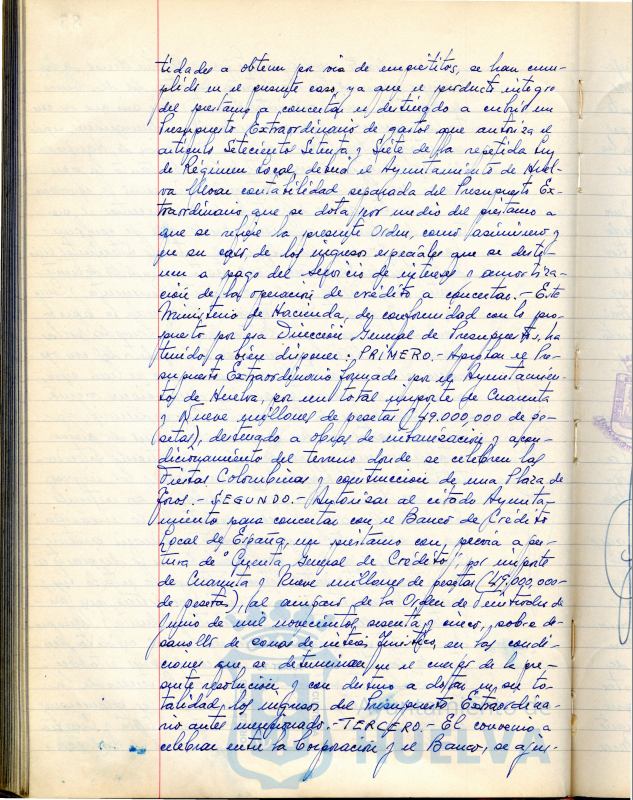 tidades a obtener por via de empréstitos, se han cum-
plido en el presente caso, ya que el producto integro
del prestamo a concertar es destinado a cubrir un
Presupuesto Extraordinario de gastos que autoriza el
articulo Setecientos Setenta y Siete de la repetida Ley
de Régimen Local, deberá el Ayuntamiento de Huel-
va llevar contabilidad separada del Presupuesto Ex-
traordinario que se dota por medio del préstamo a
que se refiere la presente Orden, como asimismo y
en su caso de los ingresos especiales que se desti-
nen a pago del servicio de intereses y amortiza-
ción de la operación de crédito a concertar.- Este
Ministerio de Hacienda, de conformidad con lo pro-
puesto por esa Dirección General de Presupuestos, ha
tenido a bien disponer: PRIMERO.- Aprobar el Pre-
supuesto Extraordinario formado por el Ayuntamien-
to de Huelva, por un total importe de Cuarenta
y Nueve millones de pesetas (49.000.000 de pe-
setas), destinado a obras de urbanización y acon-
dicionamiento del terreno donde se celebren las
Fiestas Colombinas y construcción de una Plaza de
Toros.- SEGUNDO.- Autorizar al citado Ayunta-
miento para concertar con el Banco de Crédito
Local de España, un préstamo con previa aper-
tura de "Cuenta General de Crédito", por importe
de Cuarenta y Nueve millones de pesetas (49.000.000-
de pesetas), al amparo de la Orden de Veintidos de
Junio de mil novecientos sesenta y cinco, sobre de-
sarrollo de zonas de interés turistico, en las condi-
ciones que se determinan en el cuerpo de la pre-
sente resolución y con destino a dotar en su to-
talidad, los ingresos del Presupuesto Extraordina-
rio antes mencionado.- TERCERO.- El convenio a
celebrar entre la Corporación y el Banco, se ajus-
HUELVA